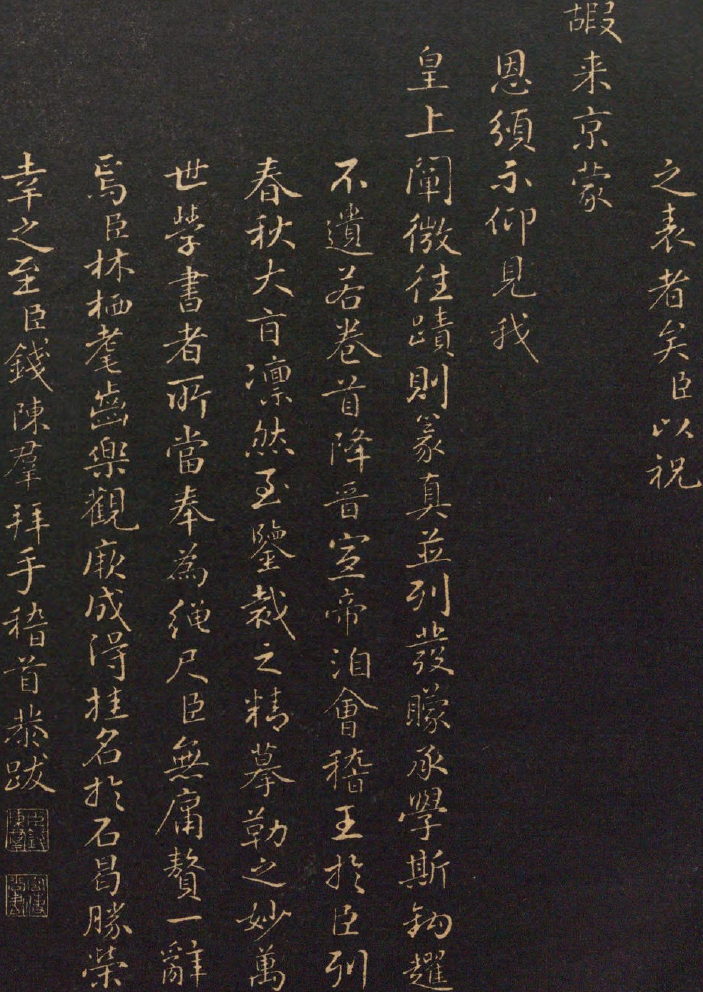 之表者矣臣以祝
嘏来京蒙
恩頒示仰見我
皇上闡微徃蹟則篆真並列發矇承學斯鈎趯
不遺若卷首降晉宣帝洎會稽王扵臣列
春秋大㫖凛然至鑒裁之精摹勒之妙萬
世學書者所當奉為繩尺臣無庸贅一辭
焉臣林栖耄齒樂觀厥成淂挂名扵石曷勝榮
幸之至臣錢陳羣拜手稽首恭跋